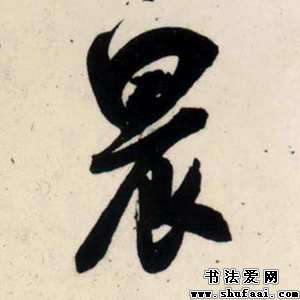 晨
书法爱网
www.shufaai.com